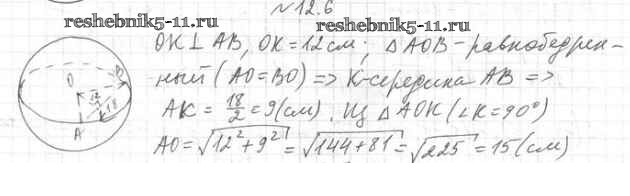 №12.6
reshebnik5-11.ru
reshebnik5-11.ru
OK⊥AB, OK=12см; △AOB-равнобедрен-
ный (AO=BO) => K-середина AB =>
AK = 18/2 = 9(см). Из △AOK (∠K=90°)
AO=√12²+9² = √144+81 = √225 = 15 (см)
O
B
12
18
A